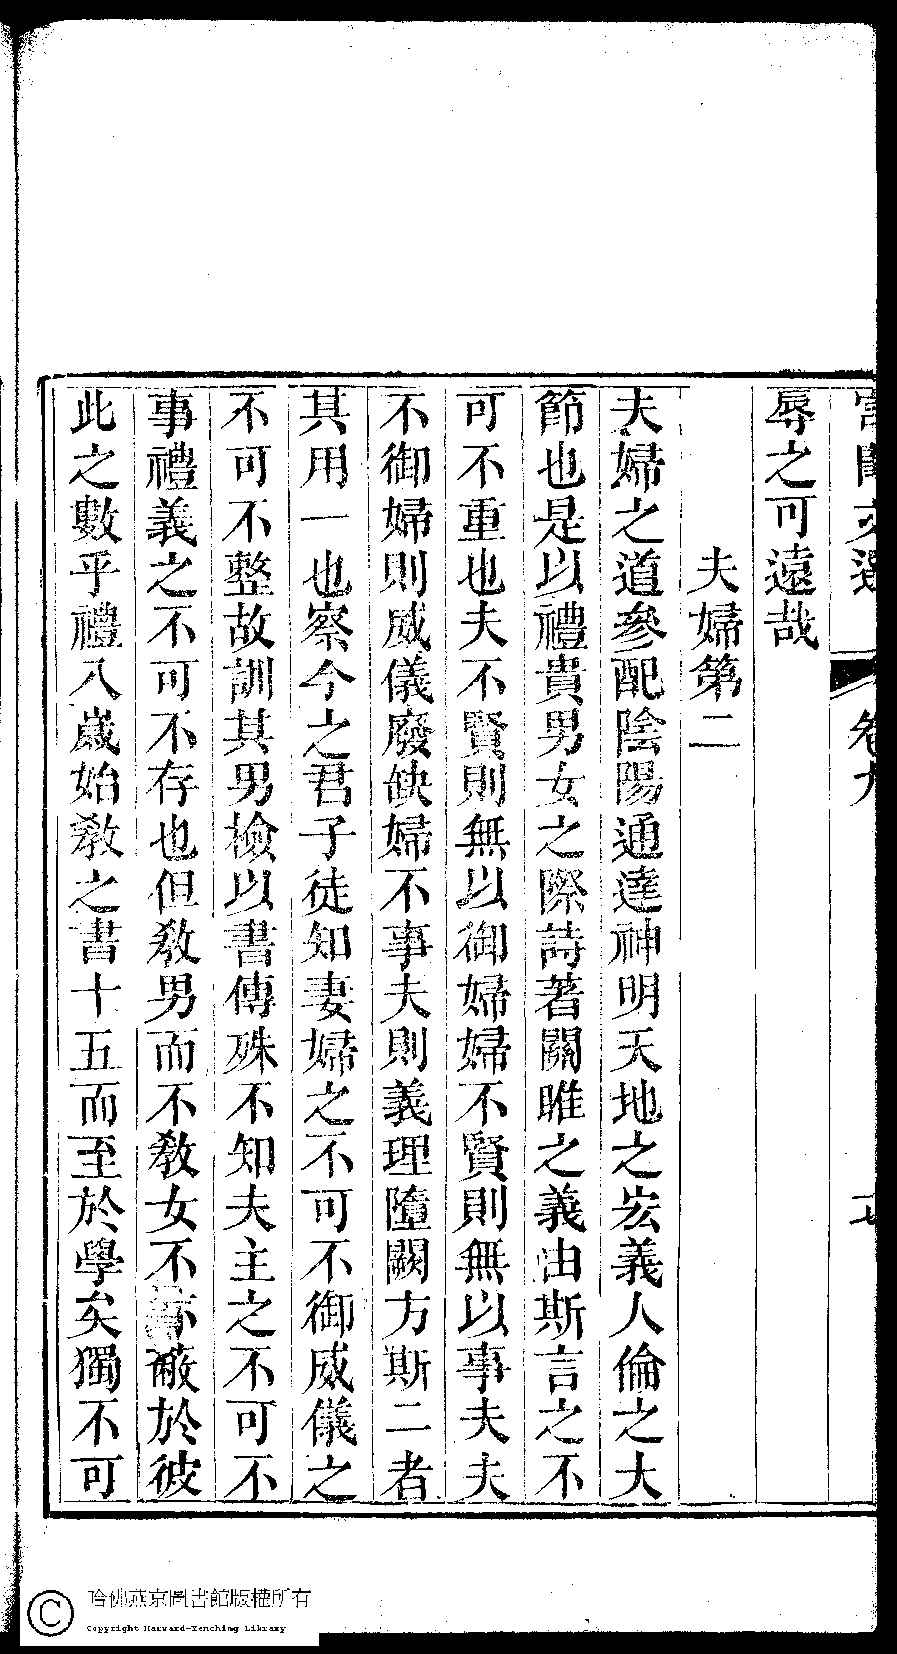 卷九
辱之可遠哉
夫婦第二
夫婦之道參配陰陽通達神明天地之宏義人倫之大
節也是以禮貴男女之際詩著關雎之義由斯言之不
可不重也夫不賢則無以御婦婦不賢則無以事夫夫
不御婦則威儀廢缺婦不事夫則義理隳闕方斯二者
其用一也察今之君子徒知妻婦之不可不御威儀之
不可不整故訓其男檢以書傳殊不知夫主之不可不
事禮義之不可不存也但敎男而不敎女不亦蔽於彼
此之數乎禮八歲始敎之書十五而至於學矣獨不可
哈佛燕京圖書館版權所有
Copyright Harvard-Yenching Library